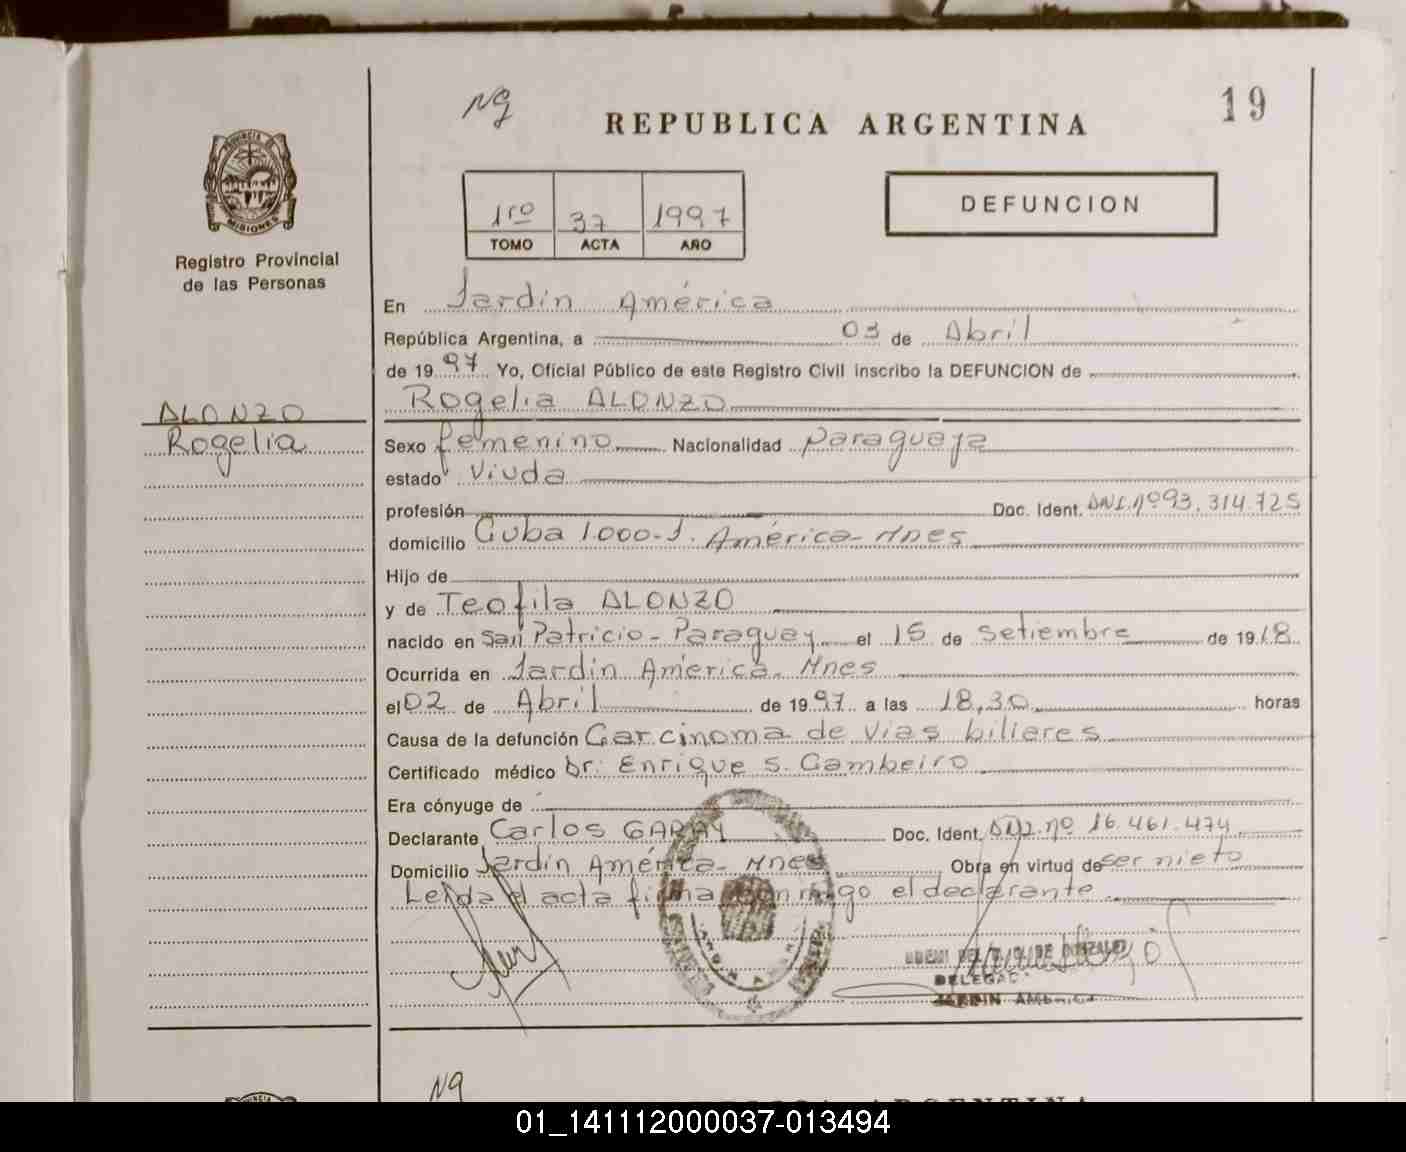 Ng
REPUBLICA ARGENTINA
19
PROVINCIA DE
MISIONES
Registro Provincial
de las Personas
1ro 37 1997
TOMO ACTA AÑO
DEFUNCION
En Jardín América
República Argentina, a 03 de Abril
de 19 97 Yo, Oficial Público de este Registro Civil inscribo la DEFUNCION de
Rogelia ALONZO
ALONZO
Rogelia
Sexo femenino Nacionalidad paraguaya
estado Viuda
profesión Doc. Ident. DNI. nº 93.314.725
domicilio Cuba 1.000-J. América-Mnes
Hijo de
y de Teofila ALONZO
nacido en San Patricio-Paraguay el 15 de Setiembre de 1918
Ocurrida en Jardín América. Mnes
el 02 de Abril de 1997 a las 18,30 horas
Causa de la defunción Carcinoma de vias biliares
Certificado médico Dr. Enrique S. Gambeiro
Era cónyuge de
Declarante Carlos GARAY Doc. Ident. DNI. nº 16.461.474
Domicilio Jardín América-Mnes Obra en virtud de ser nieto
Leída el acta firma conmigo el declarante
DELEGAD
JARDIN AMERICA
Ng
01_141112000037-013494